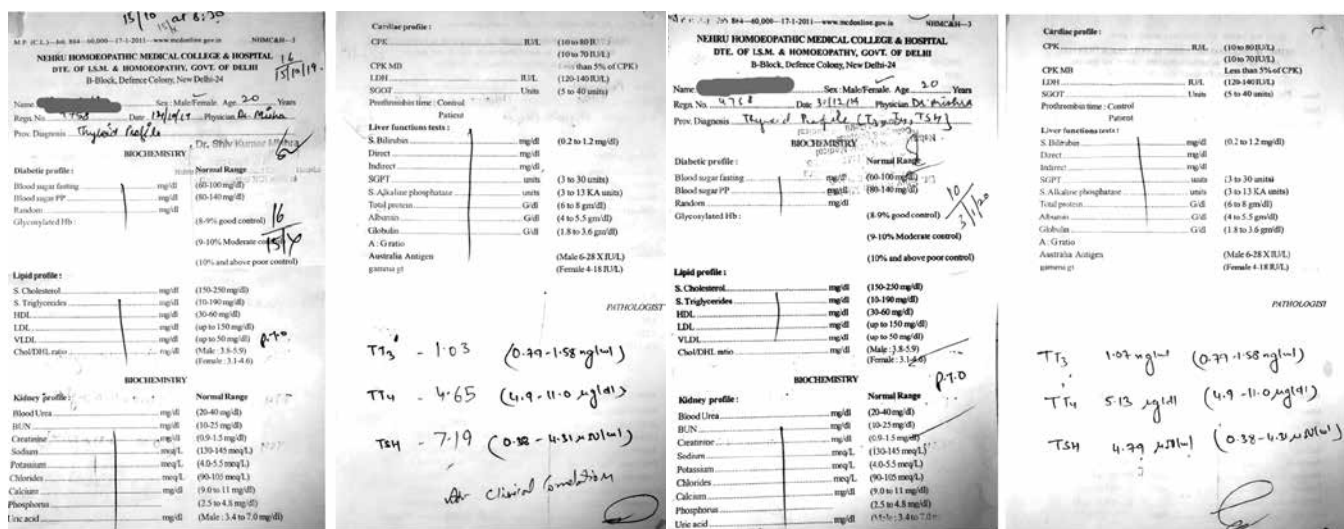 15/10 at 8:30
M.P. (C.L.)—Job. 884—60,000—17-1-2011—www.mcdonline.gov.in NHMC&H—3
NEHRU HOMOEOPATHIC MEDICAL COLLEGE & HOSPITAL
DTE. OF I.S.M. & HOMOEOPATHY, GOVT. OF DELHI
B-Block, Defence Colony, New Delhi-24
16
15/10/19.
Name Sex : Male/Female. Age 20 Years
Regn. No. Date Physician Dr. Mishra
Prov. Diagnosis Thyroid Profile
Dr. Shiv Kumar Mishra
BIOCHEMISTRY
Diabetic profile : Normal Range
Blood sugar fasting mg/dl (60-100 mg/dl)
Blood sugar PP mg/dl (80-140 mg/dl)
Random mg/dl
Glycosylated Hb : (8-9% good control)
16
(9-10% Moderate control)
(10% and above poor control)
Lipid profile :
S. Cholesterol mg/dl (150-250 mg/dl)
S. Triglycerides mg/dl (10-190 mg/dl)
HDL mg/dl (30-60 mg/dl)
LDL mg/dl (up to 150 mg/dl)
VLDL mg/dl (up to 50 mg/dl)
Chol/DHL ratio (Male : 3.8-5.9)
(Female : 3.1-4.6)
P.T.O
BIOCHEMISTRY
Kidney profile : Normal Range
Blood Urea mg/dl (20-40 mg/dl)
BUN mg/dl (10-25 mg/dl)
Creatinine mg/dl (0.9-1.5 mg/dl)
Sodium meq/L (130-145 meq/L)
Potassium meq/L (4.0-5.5 meq/L)
Chlorides meq/L (90-105 meq/L)
Calcium mg/dl (9.0 to 11 mg/dl)
Phosphorus (2.5 to 4.8 mg/dl)
Uric acid mg/dl (Male : 3.4 to 7.0 mg/dl)
Cardiac profile :
CPK IU/L (10 to 80 IU/L)
(10 to 70 IU/L)
CPK MB Less than 5% of CPK)
LDH IU/L (120-140 IU/L)
SGOT Units (5 to 40 units)
Prothrombin time : Control
Patient
Liver functions tests :
S. Bilirubin mg/dl (0.2 to 1.2 mg/dl)
Direct mg/dl
Indirect mg/dl
SGPT units (3 to 30 units)
S. Alkaline phosphatase units (3 to 13 KA units)
Total protein G/dl (6 to 8 gm/dl)
Albumin G/dl (4 to 5.5 gm/dl)
Globulin G/dl (1.8 to 3.6 gm/dl)
A : G ratio
Australia Antigen (Male 6-28 X IU/L)
gamma gt (Female 4-18 IU/L)
PATHOLOGIST
TT3 - 1.03 (0.79-1.58 ng/ml)
TT4 - 4.65 (4.9-11.0 µg/dl)
TSH - 7.19 (0.38-4.31 µIU/ml)
Adv Clinical Correlation
884—60,000—17-1-2011—www.mcdonline.gov.in NHMC&H—3
NEHRU HOMOEOPATHIC MEDICAL COLLEGE & HOSPITAL
DTE. OF I.S.M. & HOMOEOPATHY, GOVT. OF DELHI
B-Block, Defence Colony, New Delhi-24
Name Sex : Male/Female. Age 20 Years
Regn. No. 4758 Date 31/12/19 Physician Dr. Mishra
Prov. Diagnosis Thyroid Profile (T3, T4, TSH)
BIOCHEMISTRY
Diabetic profile : Normal Range
Blood sugar fasting mg/dl (60-100 mg/dl)
Blood sugar PP mg/dl (80-140 mg/dl)
Random mg/dl
Glycosylated Hb : (8-9% good control)
10
3/1/20
(9-10% Moderate control)
(10% and above poor control)
Lipid profile :
S. Cholesterol mg/dl (150-250 mg/dl)
S. Triglycerides mg/dl (10-190 mg/dl)
HDL mg/dl (30-60 mg/dl)
LDL mg/dl (up to 150 mg/dl)
VLDL mg/dl (up to 50 mg/dl)
Chol/DHL ratio (Male : 3.8-5.9)
(Female : 3.1-4.6)
P.T.O
BIOCHEMISTRY
Kidney profile : Normal Range
Blood Urea mg/dl (20-40 mg/dl)
BUN mg/dl (10-25 mg/dl)
Creatinine mg/dl (0.9-1.5 mg/dl)
Sodium meq/L (130-145 meq/L)
Potassium meq/L (4.0-5.5 meq/L)
Chlorides meq/L (90-105 meq/L)
Calcium mg/dl (9.0 to 11 mg/dl)
Phosphorus (2.5 to 4.8 mg/dl)
Uric acid mg/dl (Male : 3.4 to 7.0
Cardiac profile :
CPK IU/L (10 to 80 IU/L)
(10 to 70 IU/L)
CPK MB Less than 5% of CPK)
LDH IU/L (120-140 IU/L)
SGOT Units (5 to 40 units)
Prothrombin time : Control
Patient
Liver functions tests :
S. Bilirubin mg/dl (0.2 to 1.2 mg/dl)
Direct mg/dl
Indirect mg/dl
SGPT units (3 to 30 units)
S. Alkaline phosphatase units (3 to 13 KA units)
Total protein G/dl (6 to 8 gm/dl)
Albumin G/dl (4 to 5.5 gm/dl)
Globulin G/dl (1.8 to 3.6 gm/dl)
A : G ratio
Australia Antigen (Male 6-28 X IU/L)
gamma gt (Female 4-18 IU/L)
PATHOLOGIST
TT3 1.07 ng/ml (0.79-1.58 ng/ml)
TT4 5.13 µg/dl (4.9-11.0 µg/dl)
TSH 4.79 µIU/ml (0.38-4.31 µIU/ml)